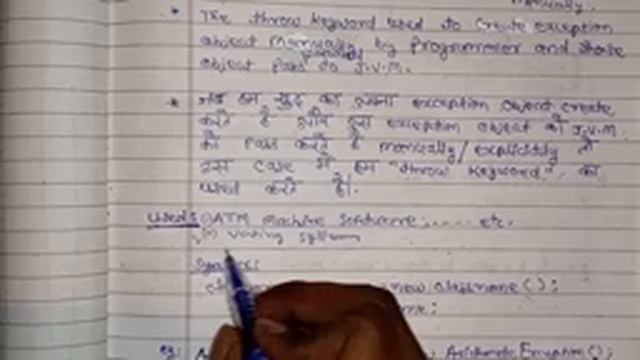 manually.
* The throw keyword used to create exception
object manually by Programmer and
object Pass to J.V.M.
* जब हम खुद का अपना exception object create
करते है और इस exception object को J.V.M.
को Pass करते है manually/explicitly तो
इस case में हम "throw keyword" का
used करते है।
ATM machine software, ..... etc.
voting system
new classname ();
eg: